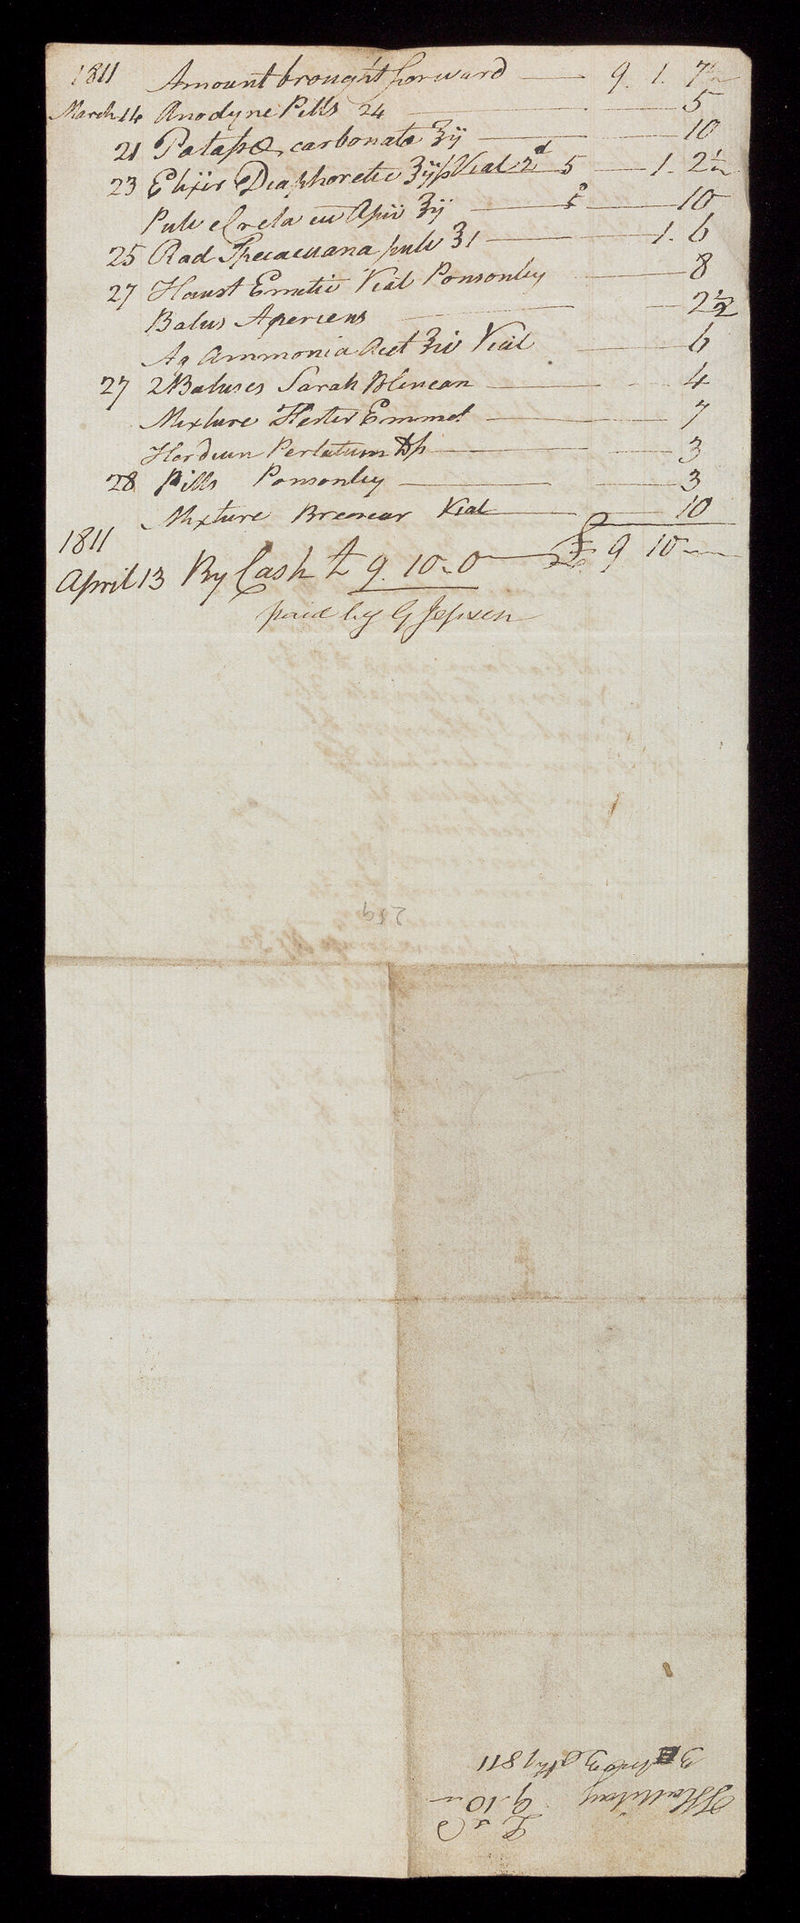 1811 Amount brought forward — 9. 1. 7½
March 14 Anodyne Pills 24 — 5
21 Potassæ carbonate ʒij — 10
23 Elixir Diaphoretic ʒijß Vial 2d 5 — 1. 2½
Pulv e Creta cu Opii ʒij — 10
25 Rad Ipecacuana pulv ʒ1 — 1. 6
27 Haust Emetic Vial Ponsonby — 8
Bolus Aperiens — 2½
Aq Ammonia Acet ʒiv Vial — 6
27 2 Boluses Sarah Blincan — 4
Mixture Hester Emmet — 7
Hordeum Perlatum — 3
28 Pills Ponsonby — 3
Mixture Vial — 10
1811 £ 9 10 —
April 13 By Cash £ 9. 10 - 0
paid by G Jepson
259
£ s D
9. 10 -
T Halliday
30th 1811